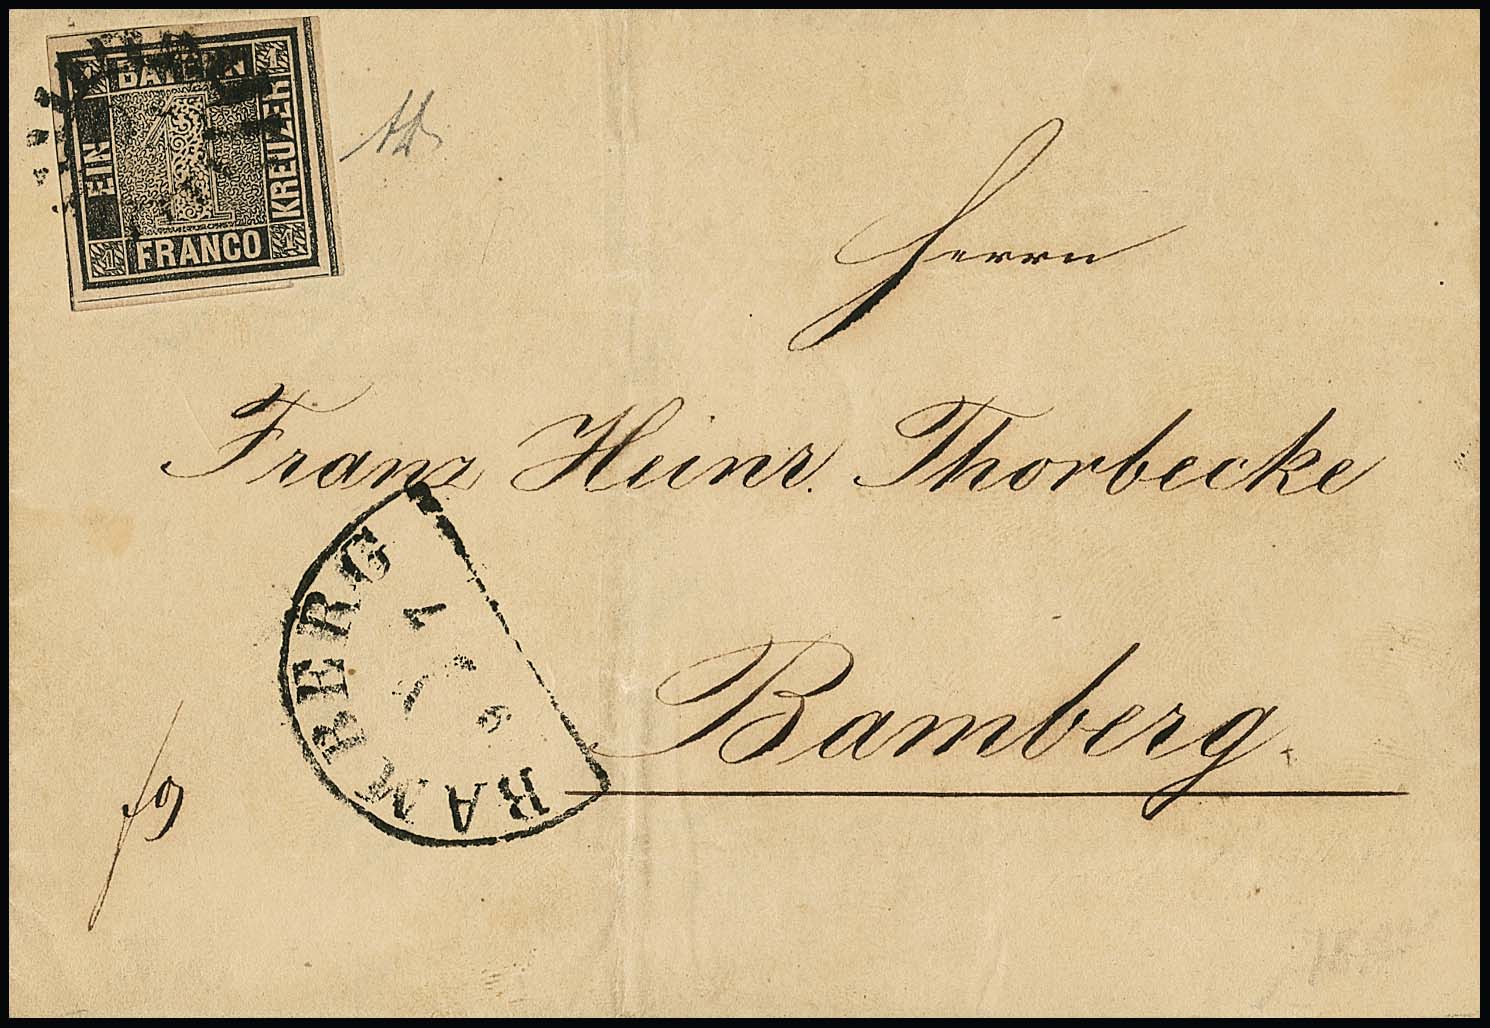 1 BAYERN 1
EIN 1 KREUZER
1 FRANCO 1
Herrn
Franz Heinr. Thorbecke
BAMBERG
Bamberg.